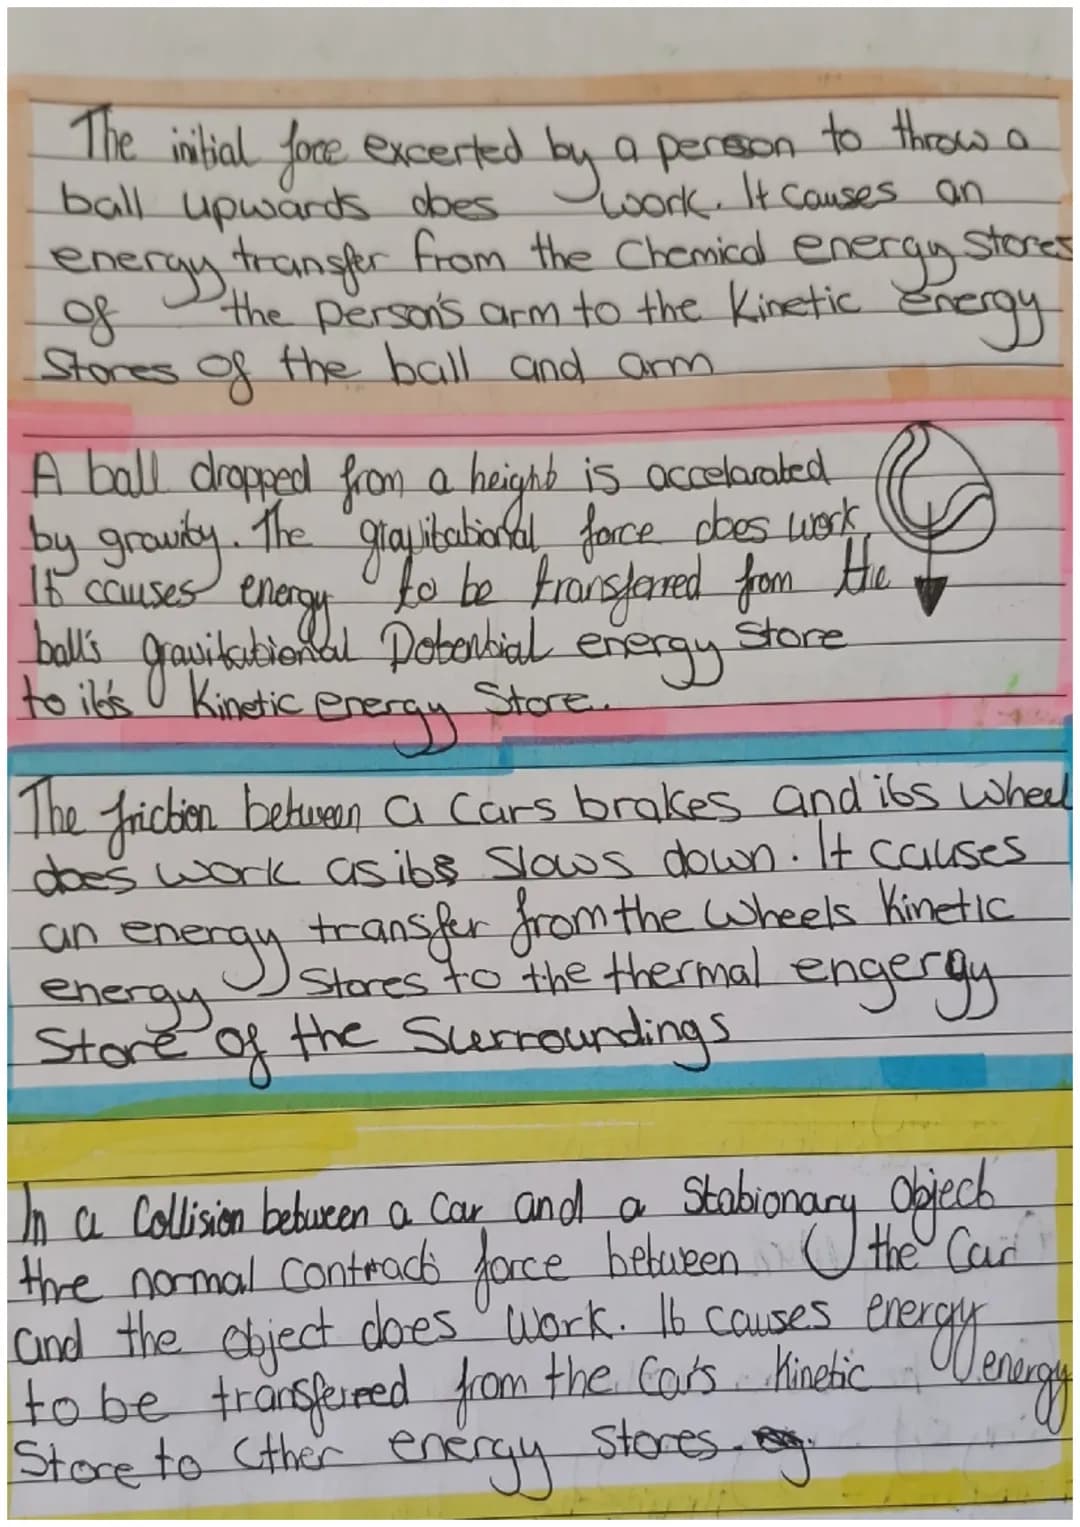 The initial force excerted by a person to throw a
ball upwards does work. It causes an
energy transfer from the Chemical energy stores
of the person's arm to the Kinetic energy
Stores of the ball and arm
A ball dropped from a height is accelarated
by gravity. The gravitational force does work.
It causes energy to be transferred from the
ball's gravitational Potential energy store
to it's Kinetic energy Store.
The friction between a cars brakes and its wheel
does work as its slows down. It causes
an energy transfer from the wheels Kinetic
energy Stores to the thermal engergy
Store of the Surroundings
In a Collision between a car and a Stationary Object
the normal contract force between the Car
and the object does work. It causes energy
to be transfereed from the Car's Kinetic energy
Store to other energy stores. eg.